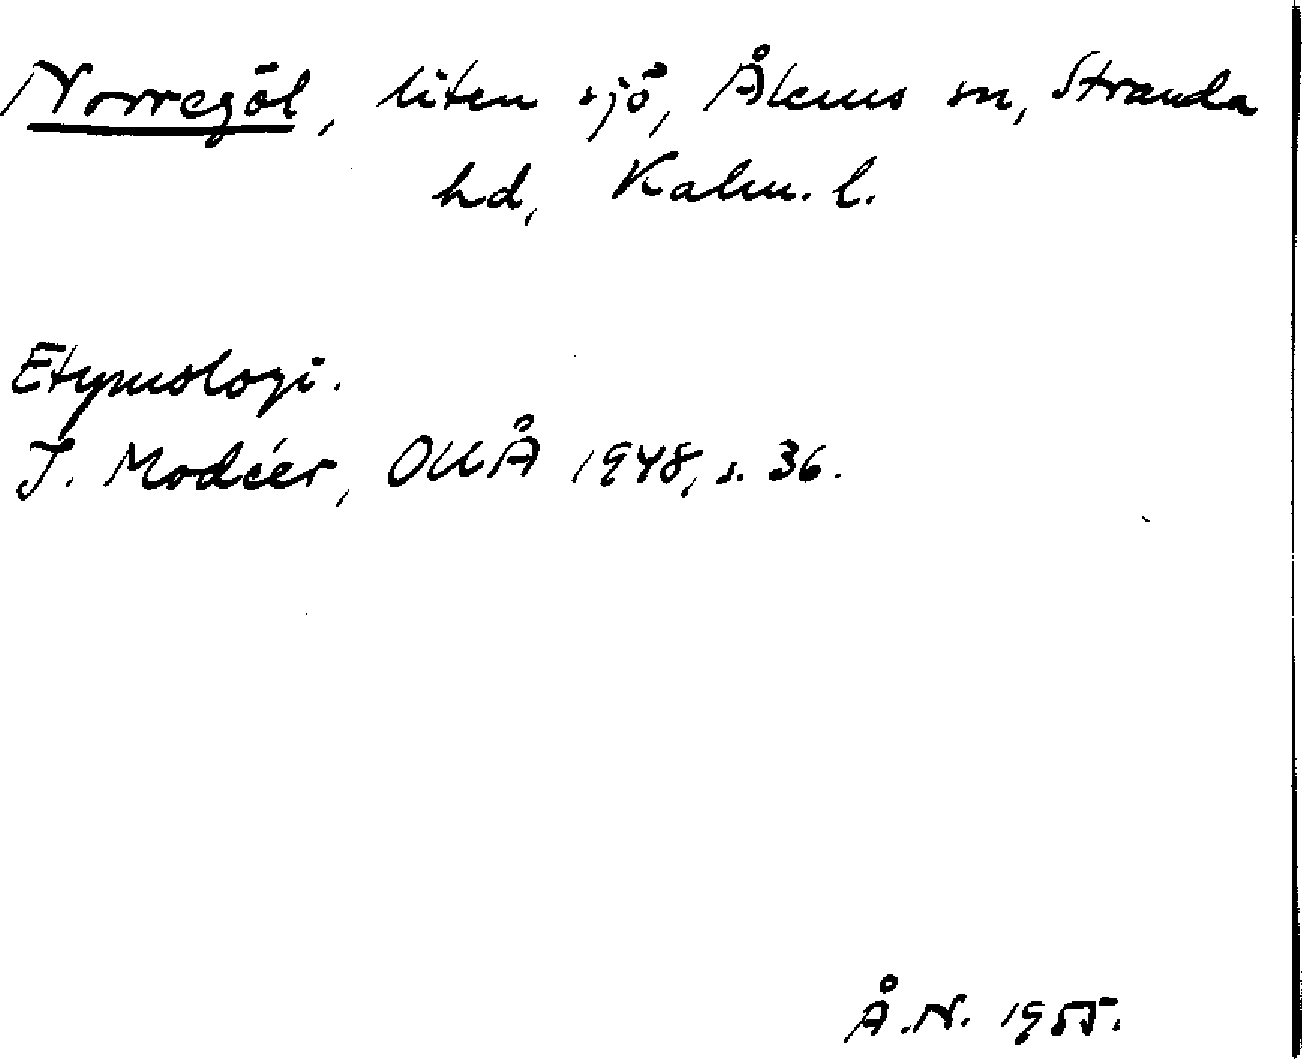 Norregöl, liten sjö, Ålems sn, Stranda
hd, Kalm. l.
Etymologi.
I. Modéer, OUÅ 1948, s. 36.
Å.N. 1955.